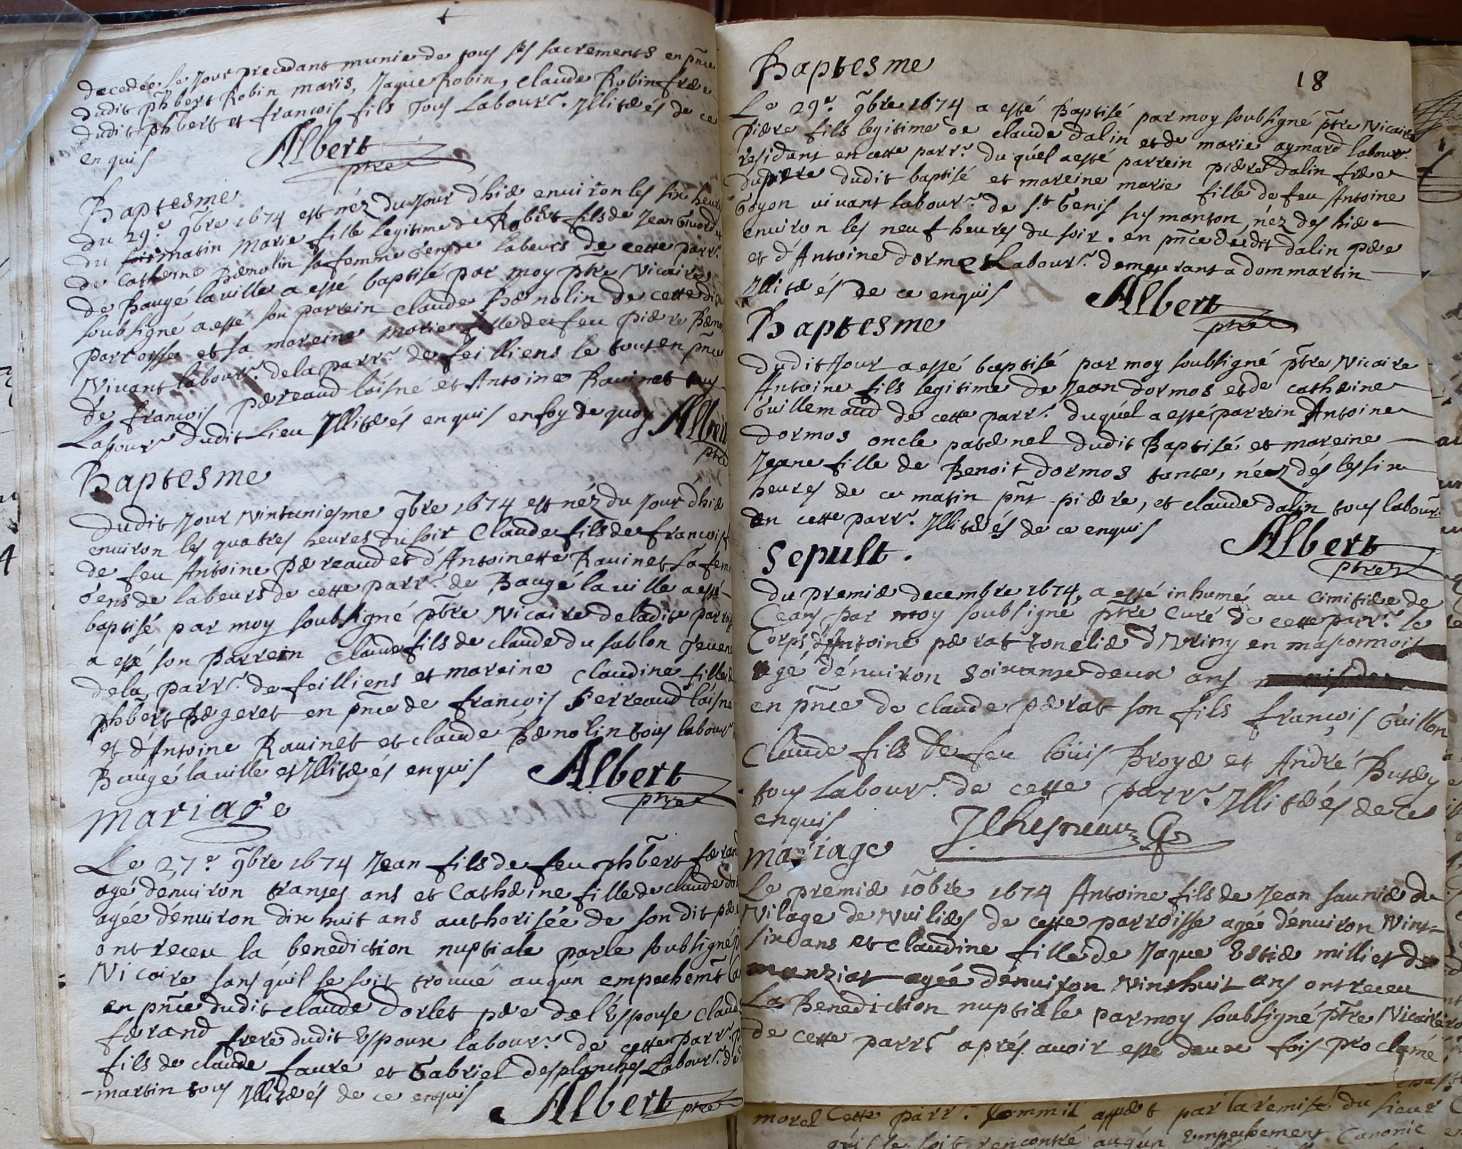 decedée le jour precedant munie de tous ses sacrements en pñce
dudit phbert Robin maris, Jaque Robin, claude Robin frere
dudit phbert et françois fils tous Labourr. Illiterés de ce
enquis
Albert
ptre
Baptesme
du 29e 9bre 1674 est néz du jour dhier environ les six heures
du matin Marie fille legitime de Robert fils de Jean
de Catherine Bernolin sa femme gens de labeurs de cette parr.
de Baugé la ville a esté baptisé par moy ptre Vicaire
soubsigné a esté son parrein claude Bernolin de cette dite
parroisse et sa mareine Marie fille de feu piere
Vivant labourr. de la parr. de feilliens le tout en pñce
de françois pereaud laisné et Antoine Ravinet tous
Labourr. dudit Lieu Illiterés enquis en foy de quoy Albert
ptre
Baptesme
dudit jour vintuniesme 9bre 1674 est néz du jour dhier
environ les quatres heures du soir Claude fils de françois
de feu Antoine pereaud et d'Antoinette Ravinet sa femme
gens de labeurs de cette parr. de Baugé la ville a esté
baptisé par moy soubsigné ptre Vicaire de ladite parr.
a esté son Parrein Claude fils de claude du sablon
de la parr. de feilliens et mareine claudine fille de
phbert Bergeret en pñce de françois Perreaud laisné
et d'Antoine Ravinet et claude Bernolin tous labourr.
Baugé la ville et Illiterés enquis
Albert
ptre
mariage
Le 27e 9bre 1674 Jean fils de feu phbert ferand
agé denviron trantes ans et Catherine fille de claude
agée denviron dix huit ans authorisée de son dit pere
ont receu la benediction nuptiale par le soubsigné
Vicaire sans quil se soit trouvé auqun empechemt
en pñce dudit claude dorlet pere de l'Espouse claude
ferand frere dudit Espoux labourr. de cette Parr.
fils de claude faure et Gabriel desplanches Labourr. de
-martin tous Illiterés de ce enquis
Albert ptre
18
Baptesme
Le 29e 9bre 1674 a esté Baptisé par moy soubsigné ptre Vicaire
piere fils legitime de claude dalin et de marie aymard labourr.
residant en cette parr. duquel a esté parrein piere Dalin frere
du pere dudit baptisé et mareine marie fille de feu Antoine
Goyon vivant labourr. de st Genis sus manton, néz des hier
environ les neuf heures du soir. en pñce dudit dalin pere
et d'Antoine dormet Labourr. demeurant a dommartin
Illiterés de ce enquis
Albert
ptre
Baptesme
dudit Jour a esté baptisé par moy soubsigné ptre Vicaire
Antoine fils legitime de Jean dormos et de catherine
Guillemaud de cette parr. duquel a esté parrein Antoine
dormos oncle paternel dudit Baptisé et mareine
Jeane fille de Benoit dormos tante, néz dés les six
heures de ce matin pñt piere, et claude dalin tous labourr.
en cette parr. Illiterés de ce enquis
Albert
ptre
Sepult.
du premier decembre 1674 a esté inhumé au Cimitiere de
Cean par moy soubsigné ptre Curé de cette parr. le
Corps d'Antoine perrat tonelier d'Uriny en masconnois
age denviron soixante deux ans
en pñce de claude perrat son fils françois Guillon
Claude fils de feu Louis Broyer et André
tous Labourr. de cette parr. Illiterés de ce
enquis
J Chesneau
mariage
Le premier 10bre 1674 Antoine fils de Jean saunier du
Vilage de Vuiliers de cette parroisse agé denviron Vint-
six ans et claudine fille de Jaque Estier milliet de
manziat agée denviron Vinthuit ans ont receu
La Benediction nuptiale par moy soubsigné ptre Vicaire
de cette parr. aprés avoir esté deux fois proclamé
cette parr. Commil appert par la remise du sieur
qu'il se soit rencontré auqun Empechement Canonic